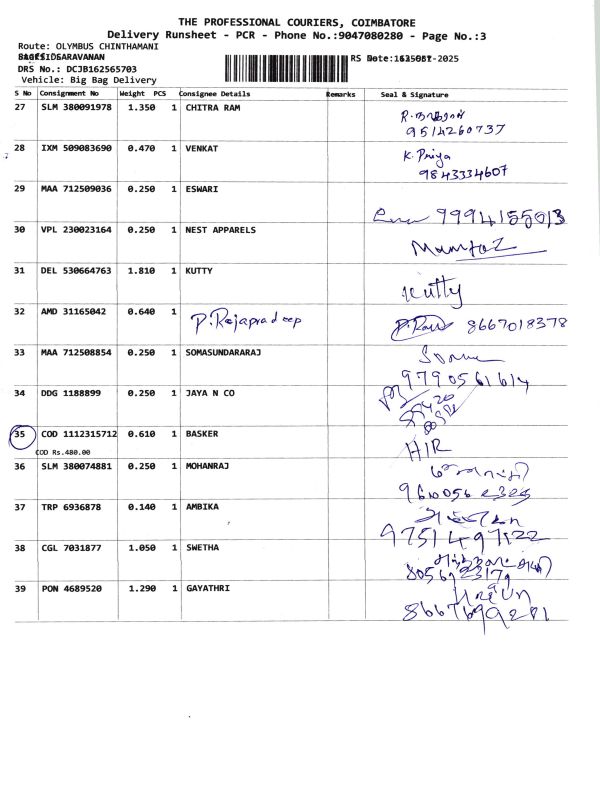 THE PROFESSIONAL COURIERS, COIMBATORE
Delivery Runsheet - PCR - Phone No.:9047080280 - Page No.:3
Route: OLYMBUS CHINTHAMANI
DRS No.: DCJB162565703
Vehicle: Big Bag Delivery
S No Consignment No Weight PCS Consignee Details Remarks Seal & Signature
27 SLM 380091978 1.350 1 CHITRA RAM
9514260737
28 IXM 509083690 0.470 1 VENKAT K. Priya
9843334607
29 MAA 712509036 0.250 1 ESWARI
30 VPL 230023164 0.250 1 NEST APPARELS Mumtaz
31 DEL 530664763 1.810 1 KUTTY Kutty
32 AMD 31165042 0.640 1 P. Rajapradeep 8667018378
33 MAA 712508854 0.250 1 SOMASUNDARARAJ
9790561614
34 DDG 1188899 0.250 1 JAYA N CO
35 COD 1112315712 0.610 1 BASKER H/R
COD Rs.480.00
36 SLM 380074881 0.250 1 MOHANRAJ
37 TRP 6936878 0.140 1 AMBIKA
38 CGL 7031877 1.050 1 SWETHA
39 PON 4689520 1.290 1 GAYATHRI